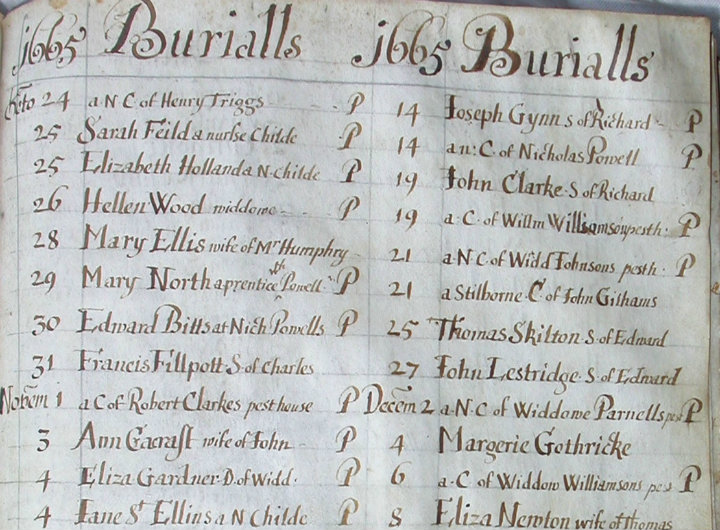 1665 Burialls
24 a N C of Henry Triggs P
25 Sarah Feild a nurse Childe P
25 Elizabeth Holland a N Childe P
26 Hellen Wood widdowe P
28 Mary Ellis wife of Mr Humphry
29 Mary North aprentice wth Powell P
30 Edward Bitts at Nich Powells P
31 Francis Fillpott S of Charles
Novem 1 a C of Robert Clarkes pesthouse P
3 Ann wife of John P
4 Eliza Gardner D. of Widd: P
4 Jane St Ellins a N Childe P
1665 Burialls
14 Joseph Gynn S of Richard P
14 a n: C. of Nicholas Powell P
19 John Clarke S of Richard
19 a C. of Willm Williamson pesth: P
21 a N C of Widd Johnsons pesth: P
21 a Stilborne C. of John Gilhams
25 Thomas Skilton S. of Edward
27 John Lestridge S. of Edward
Decem 2 a N. C of Widdowe Parnells pest P
4 Margerie Gothricke
6 a C of Widdow Williamsons pest P
8 Eliza Newton wife of thomas